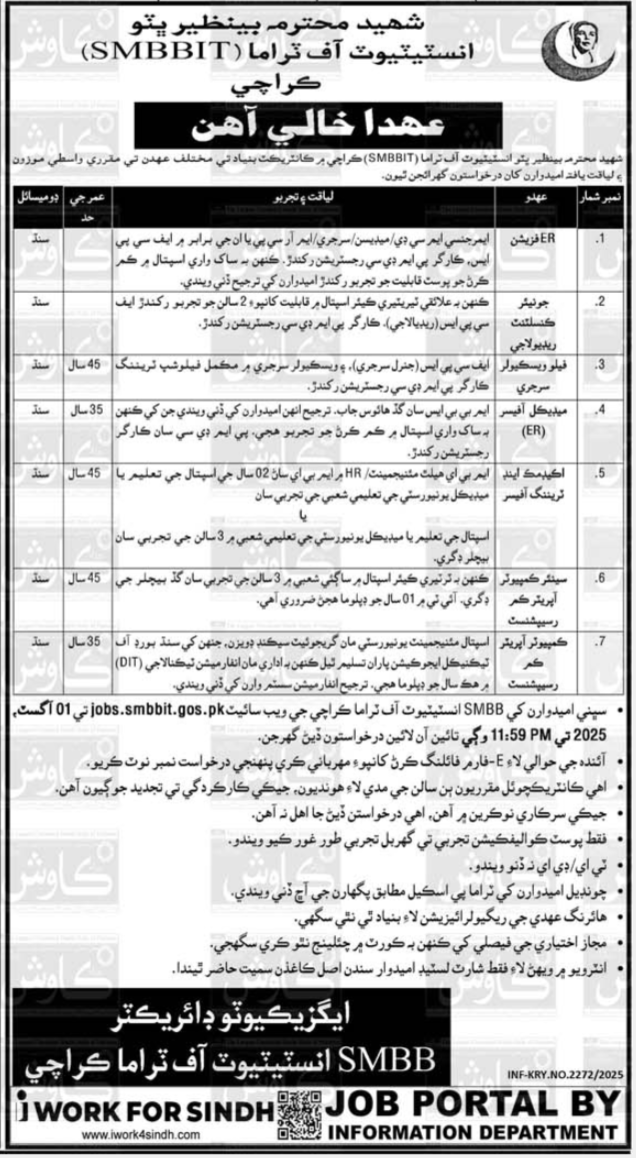 شهيد محترمہ بينظير ڀٽو
انسٽيٽيوٽ آف ٽراما (SMBBIT)
ڪراچي
عهدا خالي آهن
شهيد محترمہ بينظير ڀٽو انسٽيٽيوٽ آف ٽراما (SMBBIT) ڪراچي ۾ ڪانٽريڪٽ بنياد تي مختلف عهدن تي مقرري واسطي موزون
۽ لياقت يافتہ اميدوارن کان درخواستون گهرائجن ٿيون.
نمبر شمار عهدو لياقت ۽ تجربو عمر جي حد ڊوميسائل
1. ER فزيشن ايمرجنسي ايم سي ڊي/ ميڊيسن/ سرجري/ ايم آر سي پي يا ان جي برابر ۾ ايف سي پي سنڌ
ايس، ڪارگر پي ايم ڊي سي رجسٽريشن رکندڙ. ڪنهن بہ ساک واري اسپتال ۾ ڪم
ڪرڻ جو پوسٽ قابليت جو تجربو رکندڙ اميدوارن کي ترجيح ڏني ويندي.
2. جونيئر ڪنسلٽنٽ ريڊيولاجي ڪنهن بہ علائقي ٽيريٽيري ڪيئر اسپتال ۾ قابليت کانپوءِ 2 سالن جو تجربو رکندڙ ايف سنڌ
سي پي ايس (ريڊيالاجي). ڪارگر پي ايم ڊي سي رجسٽريشن رکندڙ.
3. فيلو ويسڪيولر سرجري ايف سي پي ايس (جنرل سرجري)، ۽ ويسڪيولر سرجري ۾ مڪمل فيلوشپ ٽريننگ 45 سال سنڌ
ڪارگر پي ايم ڊي سي رجسٽريشن رکندڙ.
4. ميڊيڪل آفيسر (ER) ايم بي بي ايس سان گڏ هائوس جاب. ترجيح انهن اميدوارن کي ڏني ويندي جن کي ڪنهن 35 سال سنڌ
بہ ساک واري اسپتال ۾ ڪم ڪرڻ جو تجربو هجي. پي ايم ڊي سي سان ڪارگر
رجسٽريشن رکندڙ.
5. اڪيڊمڪ اينڊ ٽريننگ آفيسر ايم بي اي هيلٿ مئنيجمينٽ/ HR ۾ ايم بي اي ساڻ 02 سال جي اسپتال جي تعليم يا 45 سال سنڌ
ميڊيڪل يونيورسٽي جي تعليمي شعبي جي تجربي سان
يا
اسپتال جي تعليم يا ميڊيڪل يونيورسٽي جي تعليمي شعبي ۾ 3 سالن جي تجربي سان
بيچلر ڊگري.
6. سينئر ڪمپيوٽر آپريٽر ڪم رسيپشنسٽ ڪنهن بہ ٽرٽيري ڪيئر اسپتال ۾ ساڳئي شعبي ۾ 3 سالن جي تجربي سان گڏ بيچلر جي 45 سال سنڌ
ڊگري. آئي ٽي ۾ 01 سال جو ڊپلوما هجڻ ضروري آهي.
7. ڪمپيوٽر آپريٽر ڪم رسيپشنسٽ اسپتال مئنيجمينٽ يونيورسٽي مان گريجوئيٽ سيڪنڊ ڊويزن، جنهن کي سنڌ بورڊ آف 35 سال سنڌ
ٽيڪنيڪل ايجوڪيشن پاران تسليم ٿيل ڪنهن بہ اداري مان انفارميشن ٽيڪنالاجي (DIT)
۾ هڪ سال جو ڊپلوما هجي. ترجيح انفارميشن سسٽم وارن کي ڏني ويندي.
• سڀني اميدوارن کي SMBB انسٽيٽيوٽ آف ٽراما ڪراچي جي ويب سائيٽ jobs.smbbit.gos.pk تي 01 آگسٽ،
2025 تي 11:59 PM وڳي تائين آن لائين درخواستون ڏيڻ گهرجن.
• آئندہ جي حوالي لاءِ E-فارم فائلنگ ڪرڻ کانپوءِ مهرباني ڪري پنهنجي درخواست نمبر نوٽ ڪريو.
• اهي ڪانٽريڪچوئل مقرريون ٻن سالن جي مدي لاءِ هونديون، جيڪي ڪارڪردگي تي تجديد جوڳيون آهن.
• جيڪي سرڪاري نوڪرين ۾ آهن، اهي درخواستن ڏيڻ جا اهل نہ آهن.
• فقط پوسٽ ڪواليفڪيشن تجربي تي گهربل تجربي طور غور ڪيو ويندو.
• ٽي اي/ ڊي اي نہ ڏنو ويندو.
• چونڊيل اميدوارن کي ٽراما پي اسڪيل مطابق پگهارن جي آڇ ڏني ويندي.
• هائرنگ عهدي جي ريگيولرائيزيشن لاءِ بنياد ٿي نٿي سگهي.
• مجاز اختياري جي فيصلي کي ڪنهن بہ ڪورٽ ۾ چئلينج نٿو ڪري سگهجي.
• انٽرويو ۾ ويهڻ لاءِ فقط شارٽ لسٽيڊ اميدوار سندن اصل ڪاغذن سميت حاضر ٿيندا.
ايگزيڪيوٽو ڊائريڪٽر
SMBB انسٽيٽيوٽ آف ٽراما ڪراچي
INF-KRY.NO.2272/2025
i WORK FOR SINDH
www.iwork4sindh.com
JOB PORTAL BY
INFORMATION DEPARTMENT
ڪاوش